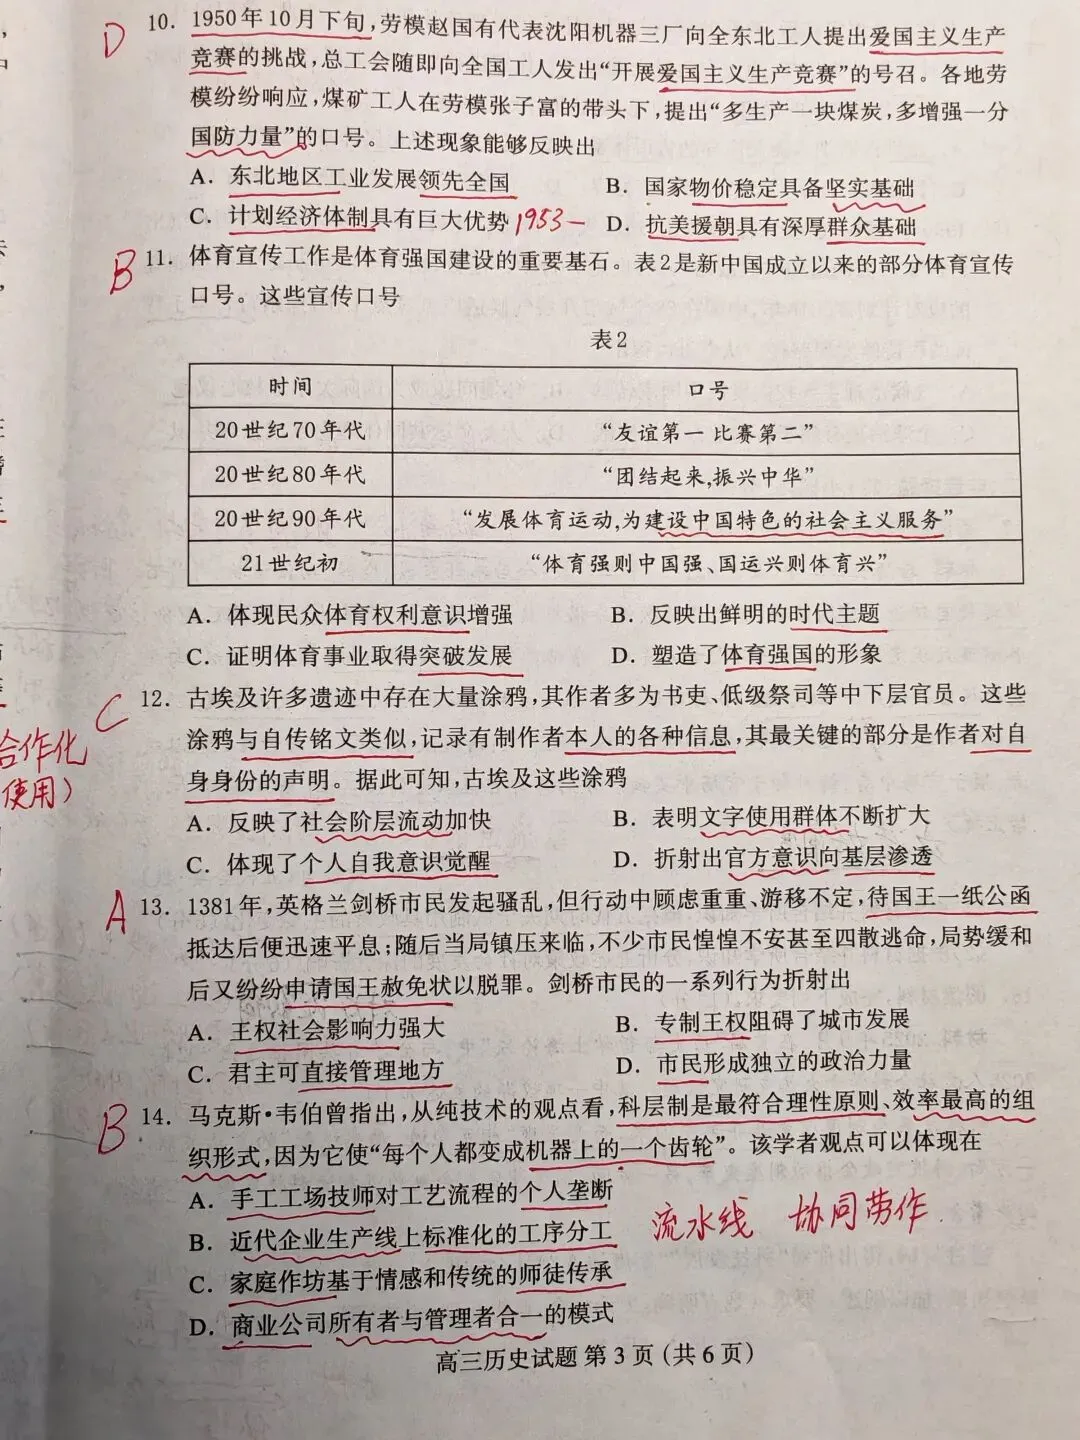 D 10. 1950年10月下旬,劳模赵国有代表沈阳机器三厂向全东北工人提出爱国主义生产
竞赛的挑战,总工会随即向全国工人发出“开展爱国主义生产竞赛”的号召。各地劳
模纷纷响应,煤矿工人在劳模张子富的带头下,提出“多生产一块煤炭,多增强一分
国防力量”的口号。上述现象能够反映出
A. 东北地区工业发展领先全国 B. 国家物价稳定具备坚实基础
C. 计划经济体制具有巨大优势 1953— D. 抗美援朝具有深厚群众基础
B 11. 体育宣传工作是体育强国建设的重要基石。表2是新中国成立以来的部分体育宣传
口号。这些宣传口号
表2
时间 口号
20世纪70年代 “友谊第一 比赛第二”
20世纪80年代 “团结起来,振兴中华”
20世纪90年代 “发展体育运动,为建设中国特色的社会主义服务”
21世纪初 “体育强则中国强、国运兴则体育兴”
A. 体现民众体育权利意识增强 B. 反映出鲜明的时代主题
C. 证明体育事业取得突破发展 D. 塑造了体育强国的形象
C 12. 古埃及许多遗迹中存在大量涂鸦,其作者多为书吏、低级祭司等中下层官员。这些
涂鸦与自传铭文类似,记录有制作者本人的各种信息,其最关键的部分是作者对自
合作化
身身份的声明。据此可知,古埃及这些涂鸦
使用)
A. 反映了社会阶层流动加快 B. 表明文字使用群体不断扩大
C. 体现了个人自我意识觉醒 D. 折射出官方意识向基层渗透
A 13. 1381年,英格兰剑桥市民发起骚乱,但行动中顾虑重重、游移不定,待国王一纸公函
抵达后便迅速平息;随后当局镇压来临,不少市民惶惶不安甚至四散逃命,局势缓和
后又纷纷申请国王赦免状以脱罪。剑桥市民的一系列行为折射出
A. 王权社会影响力强大 B. 专制王权阻碍了城市发展
C. 君主可直接管理地方 D. 市民形成独立的政治力量
B 14. 马克斯·韦伯曾指出,从纯技术的观点看,科层制是最符合理性原则、效率最高的组
织形式,因为它使“每个人都变成机器上的一个齿轮”。该学者观点可以体现在
A. 手工工场技师对工艺流程的个人垄断
流水线 协同劳作
B. 近代企业生产线上标准化的工序分工
C. 家庭作坊基于情感和传统的师徒传承
D. 商业公司所有者与管理者合一的模式
高三历史试题 第3页(共6页)